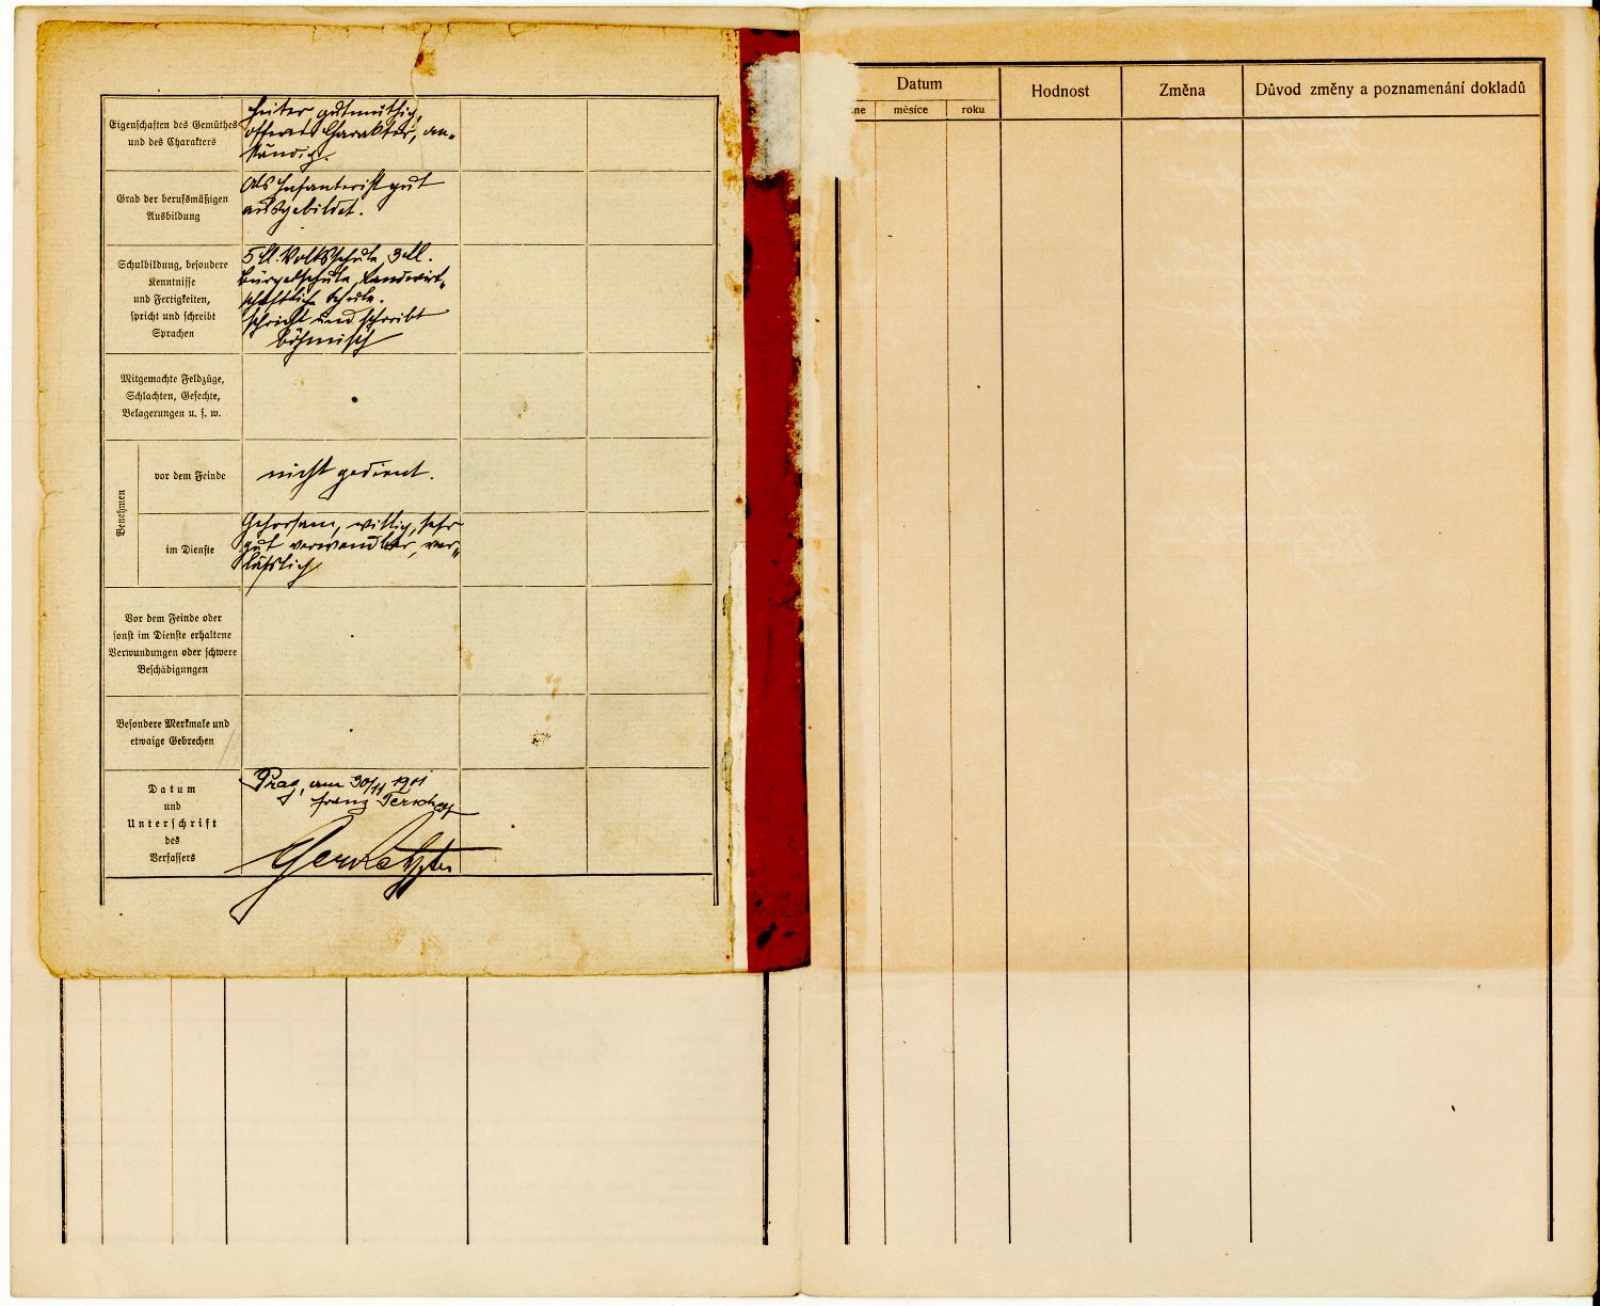 Eigenschaften des Gemüthes
und des Charakters
heiter, gutmüthig,
offener Charakter, an-
ständig.
Grad der berufsmäßigen
Ausbildung
Als Infanterist gut
ausgebildet.
Schulbildung, besondere
Kenntnisse
und Fertigkeiten,
spricht und schreibt
Sprachen
5 Kl. Volksschule, 3 Kl.
Bürgerschule, Landwirt-
schaftliche Schule.
spricht und schreibt
böhmisch
Mitgemachte Feldzüge,
Schlachten, Gefechte,
Belagerungen u. s. w.
Benehmen
vor dem Feinde
nicht gedient.
im Dienste
Gehorsam, willig, sehr
gut verwendbar, ver-
läßlich
Vor dem Feinde oder
sonst im Dienste erhaltene
Verwundungen oder schwere
Beschädigungen
Besondere Merkmale und
etwaige Gebrechen
Datum
und
Unterschrift
des
Verfassers
Prag, am 30/11 1901
Franz
Datum
ne
měsíce
roku
Hodnost
Změna
Důvod změny a poznamenání dokladů